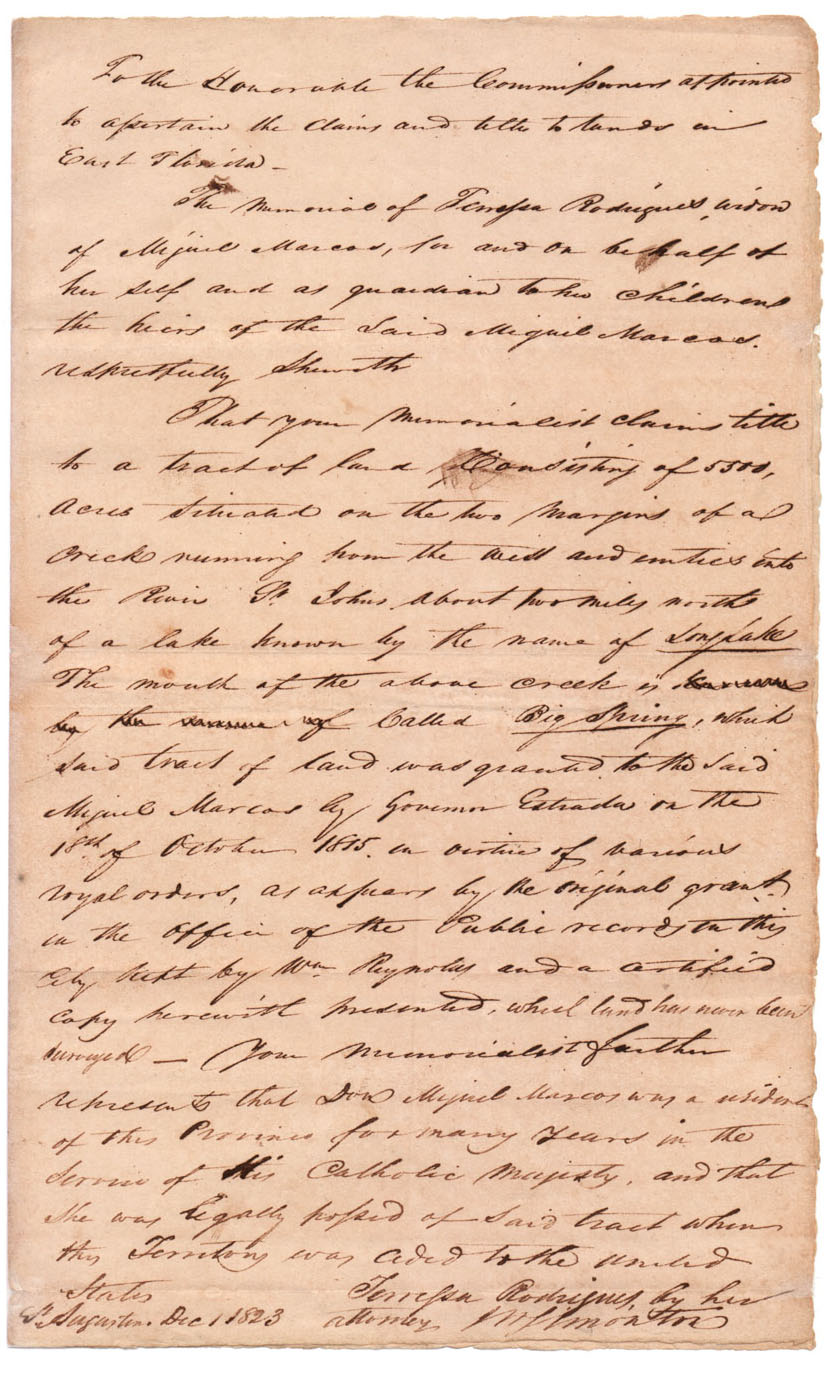 To the Honorable the Commissioners appointed
to assertain the claims and title to lands in
East Florida —
The memorial of Terressa Rodrigues, widow
of Miguel Marcos, for and on be half of
her self and as guardian to her children
the heirs of the said Miguel Marcos.
respectfully Sheweth
That your Memorialist claims title
to a tract of land Consisting of 5500,
Acres situated on the two margins of a
creek running from the West and emties into
the River St. Johns about two miles north
of a lake known by the name of Long Lake
The mouth of the above creek is known
by the name of Called Big Spring, which
said tract of land was granted to the said
Miguel Marcos by Governor Estrada on the
18th of October 1815. in virtue of various
royal orders, as appears by the original grant
in the Office of the Public records in this
City kept by Wm Reynolds and a certified
copy herewith presented, which land has never been
surveyed — Your Memorialist further
represents that Don Miguel Marcos was a resident
of this Province for many years in the
service of His Catholic Majesty, and that
she was legally possed of said tract when
this Territory was ceded to the United
States Terressa Rodrigues, by her
St Augustin. Dec 1 1823 attorney W Simonton